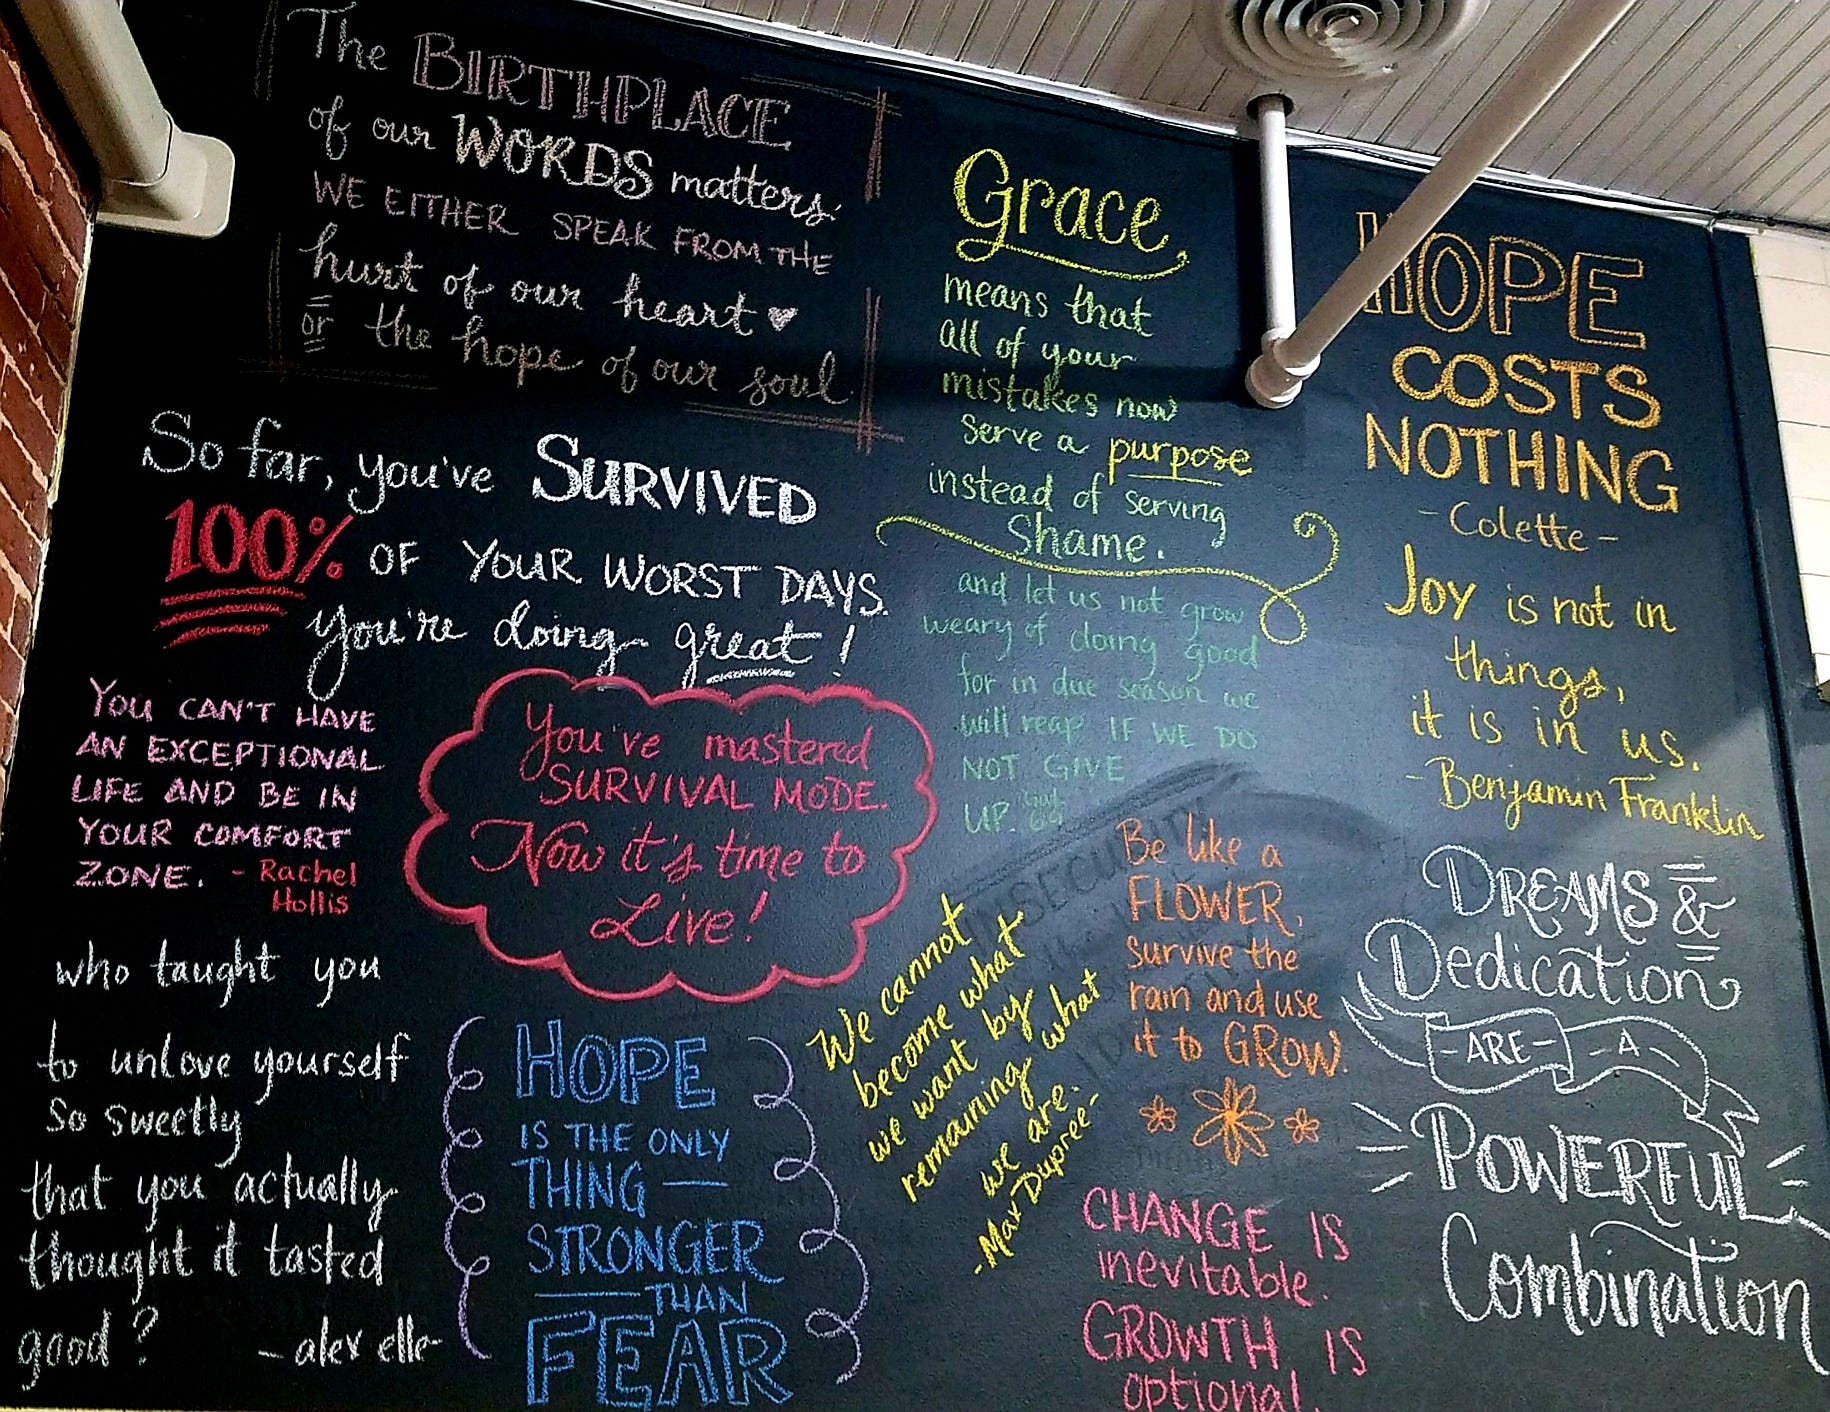 The BIRTHPLACE
of our WORDS matters:
WE EITHER SPEAK FROM THE
hurt of our heart
or the hope of our soul
So far, you've SURVIVED
100% OF YOUR WORST DAYS.
you're doing great!
YOU CAN'T HAVE
AN EXCEPTIONAL
LIFE AND BE IN
YOUR COMFORT
ZONE. - Rachel
Hollis
You've mastered
SURVIVAL MODE.
Now it's time to
Live!
who taught you
to unlove yourself
So sweetly
that you actually
thought it tasted
good?
- alex elle-
HOPE
IS THE ONLY
THING —
STRONGER
— THAN
FEAR
Grace
means that
all of your
mistakes now
serve a purpose
instead of serving
Shame.
and let us not grow
weary of doing good
for in due season we
will reap IF WE DO
NOT GIVE
UP.
We cannot
become what
we want by
remaining what
we are.
-Max Dupree-
Be like a
FLOWER,
survive the
rain and use
it to GROW.
CHANGE IS
inevitable.
GROWTH IS
optional.
HOPE
COSTS
NOTHING
-Colette-
Joy is not in
things,
it is in us.
-Benjamin Franklin
DREAMS &
Dedication
-ARE- -A-
POWERFUL
Combination